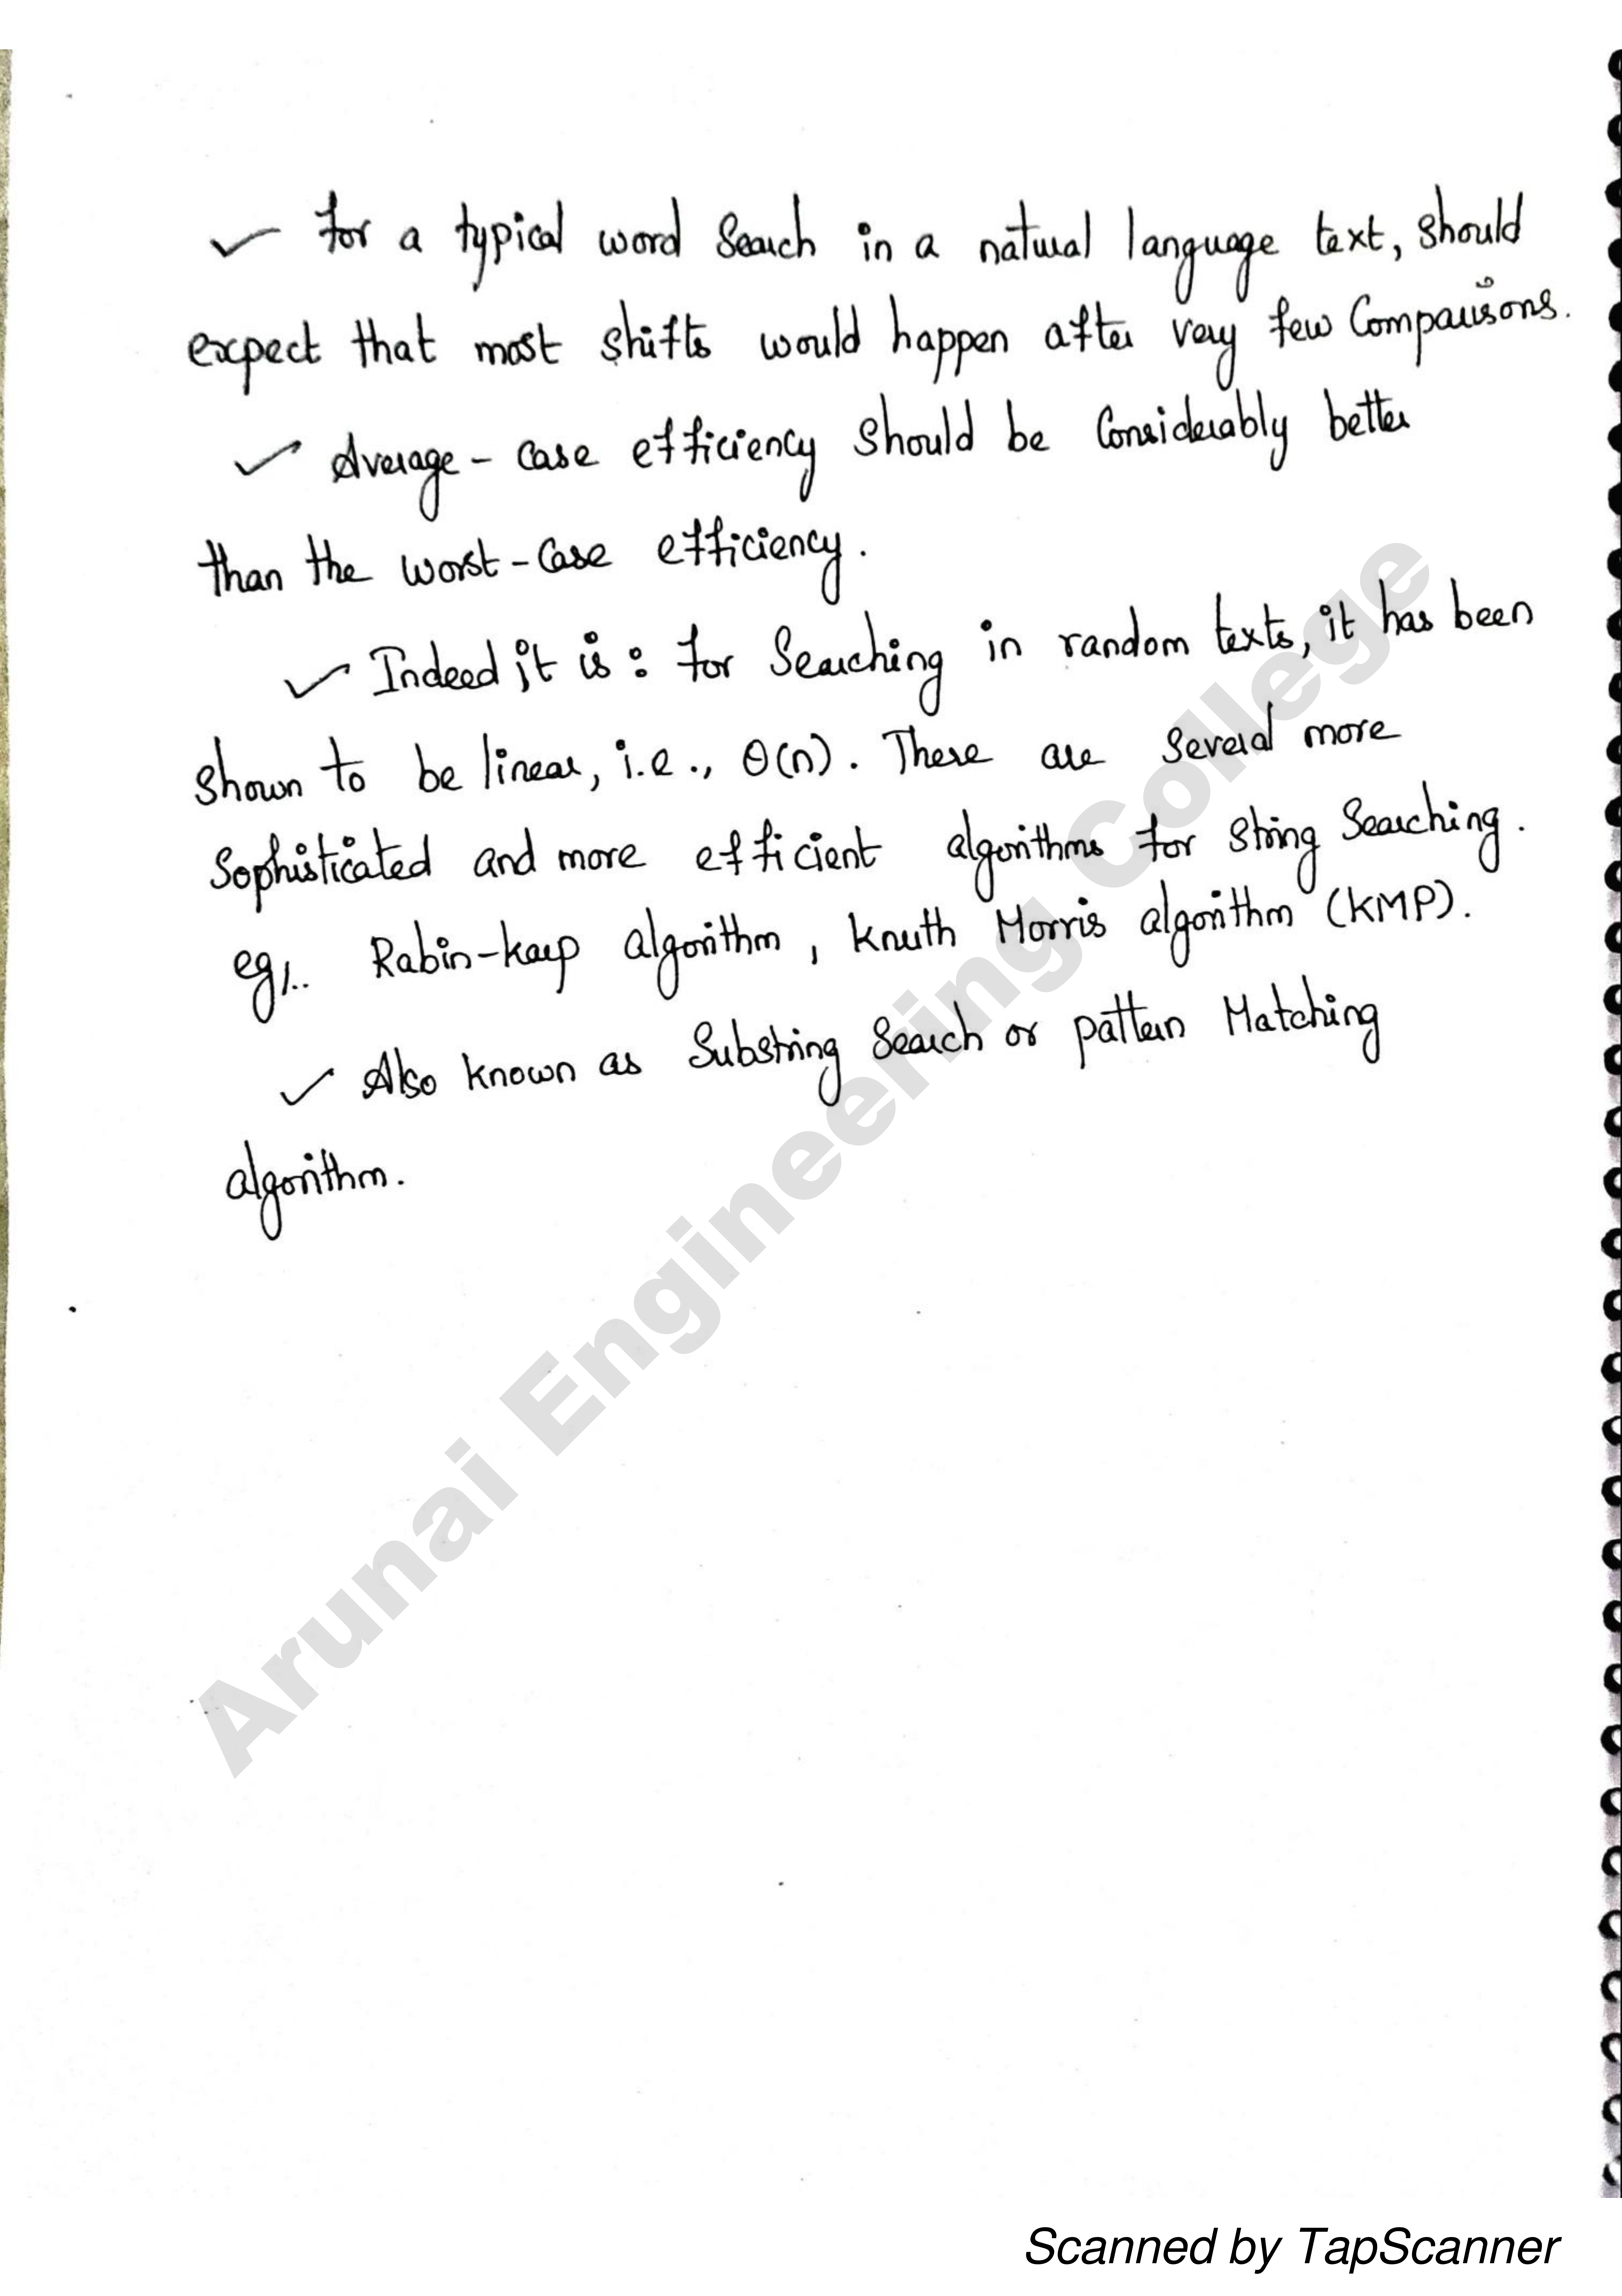 ✓ For a typical word search in a natural language text, should
expect that most shifts would happen after very few Comparisons.
✓ Average - case efficiency should be Considerably better
than the worst - Case efficiency.
✓ Indeed it is : for Searching in random texts, it has been
shown to be linear, i.e., θ(n). There are several more
Sophisticated and more efficient algorithms for string Searching.
eg/.. Rabin-karp algorithm, knuth Morris algorithm (KMP).
✓ Also known as Substring Search or pattern Matching
algorithm.
Arunai Engineering College
Scanned by TapScanner